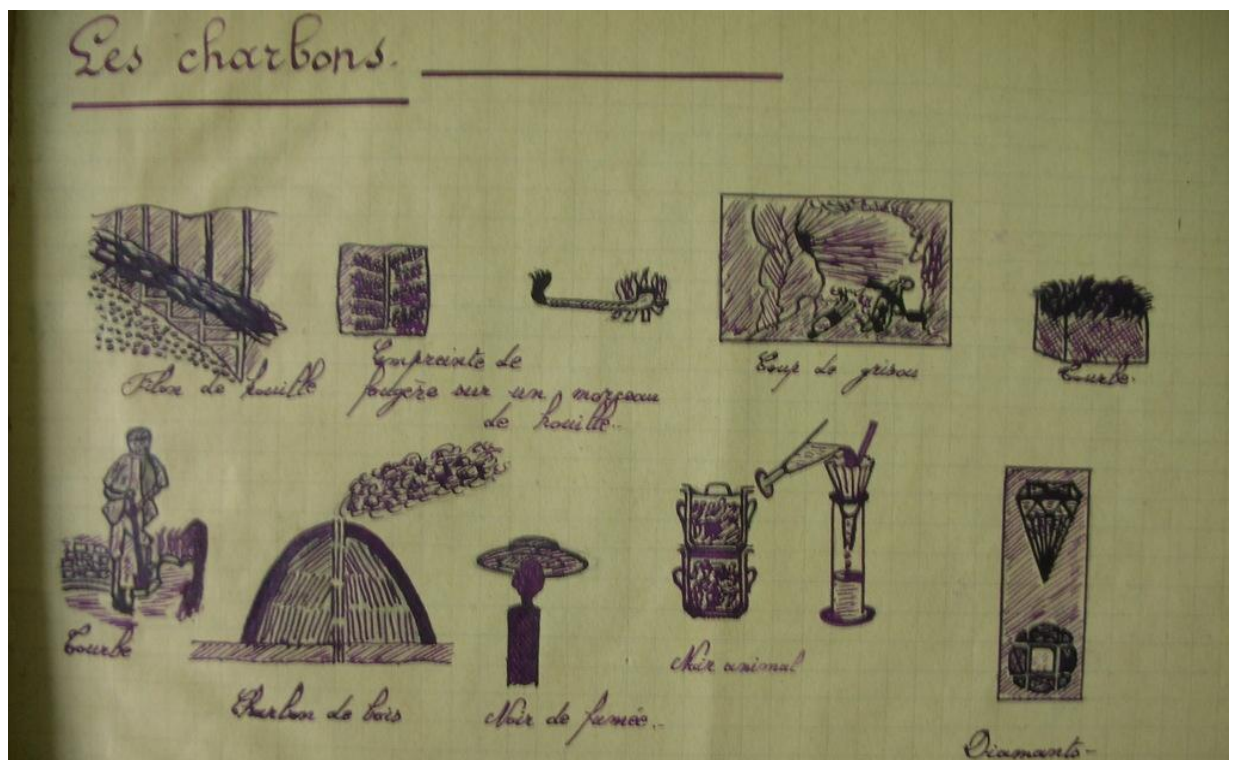 Les charbons.
Filon de houille
Empreinte de
fougère sur un morceau
de houille..
Coup de grisou
Tourbe.
Tourbe
Charbon de bois
Noir de fumée..
Noir animal
Diamants-